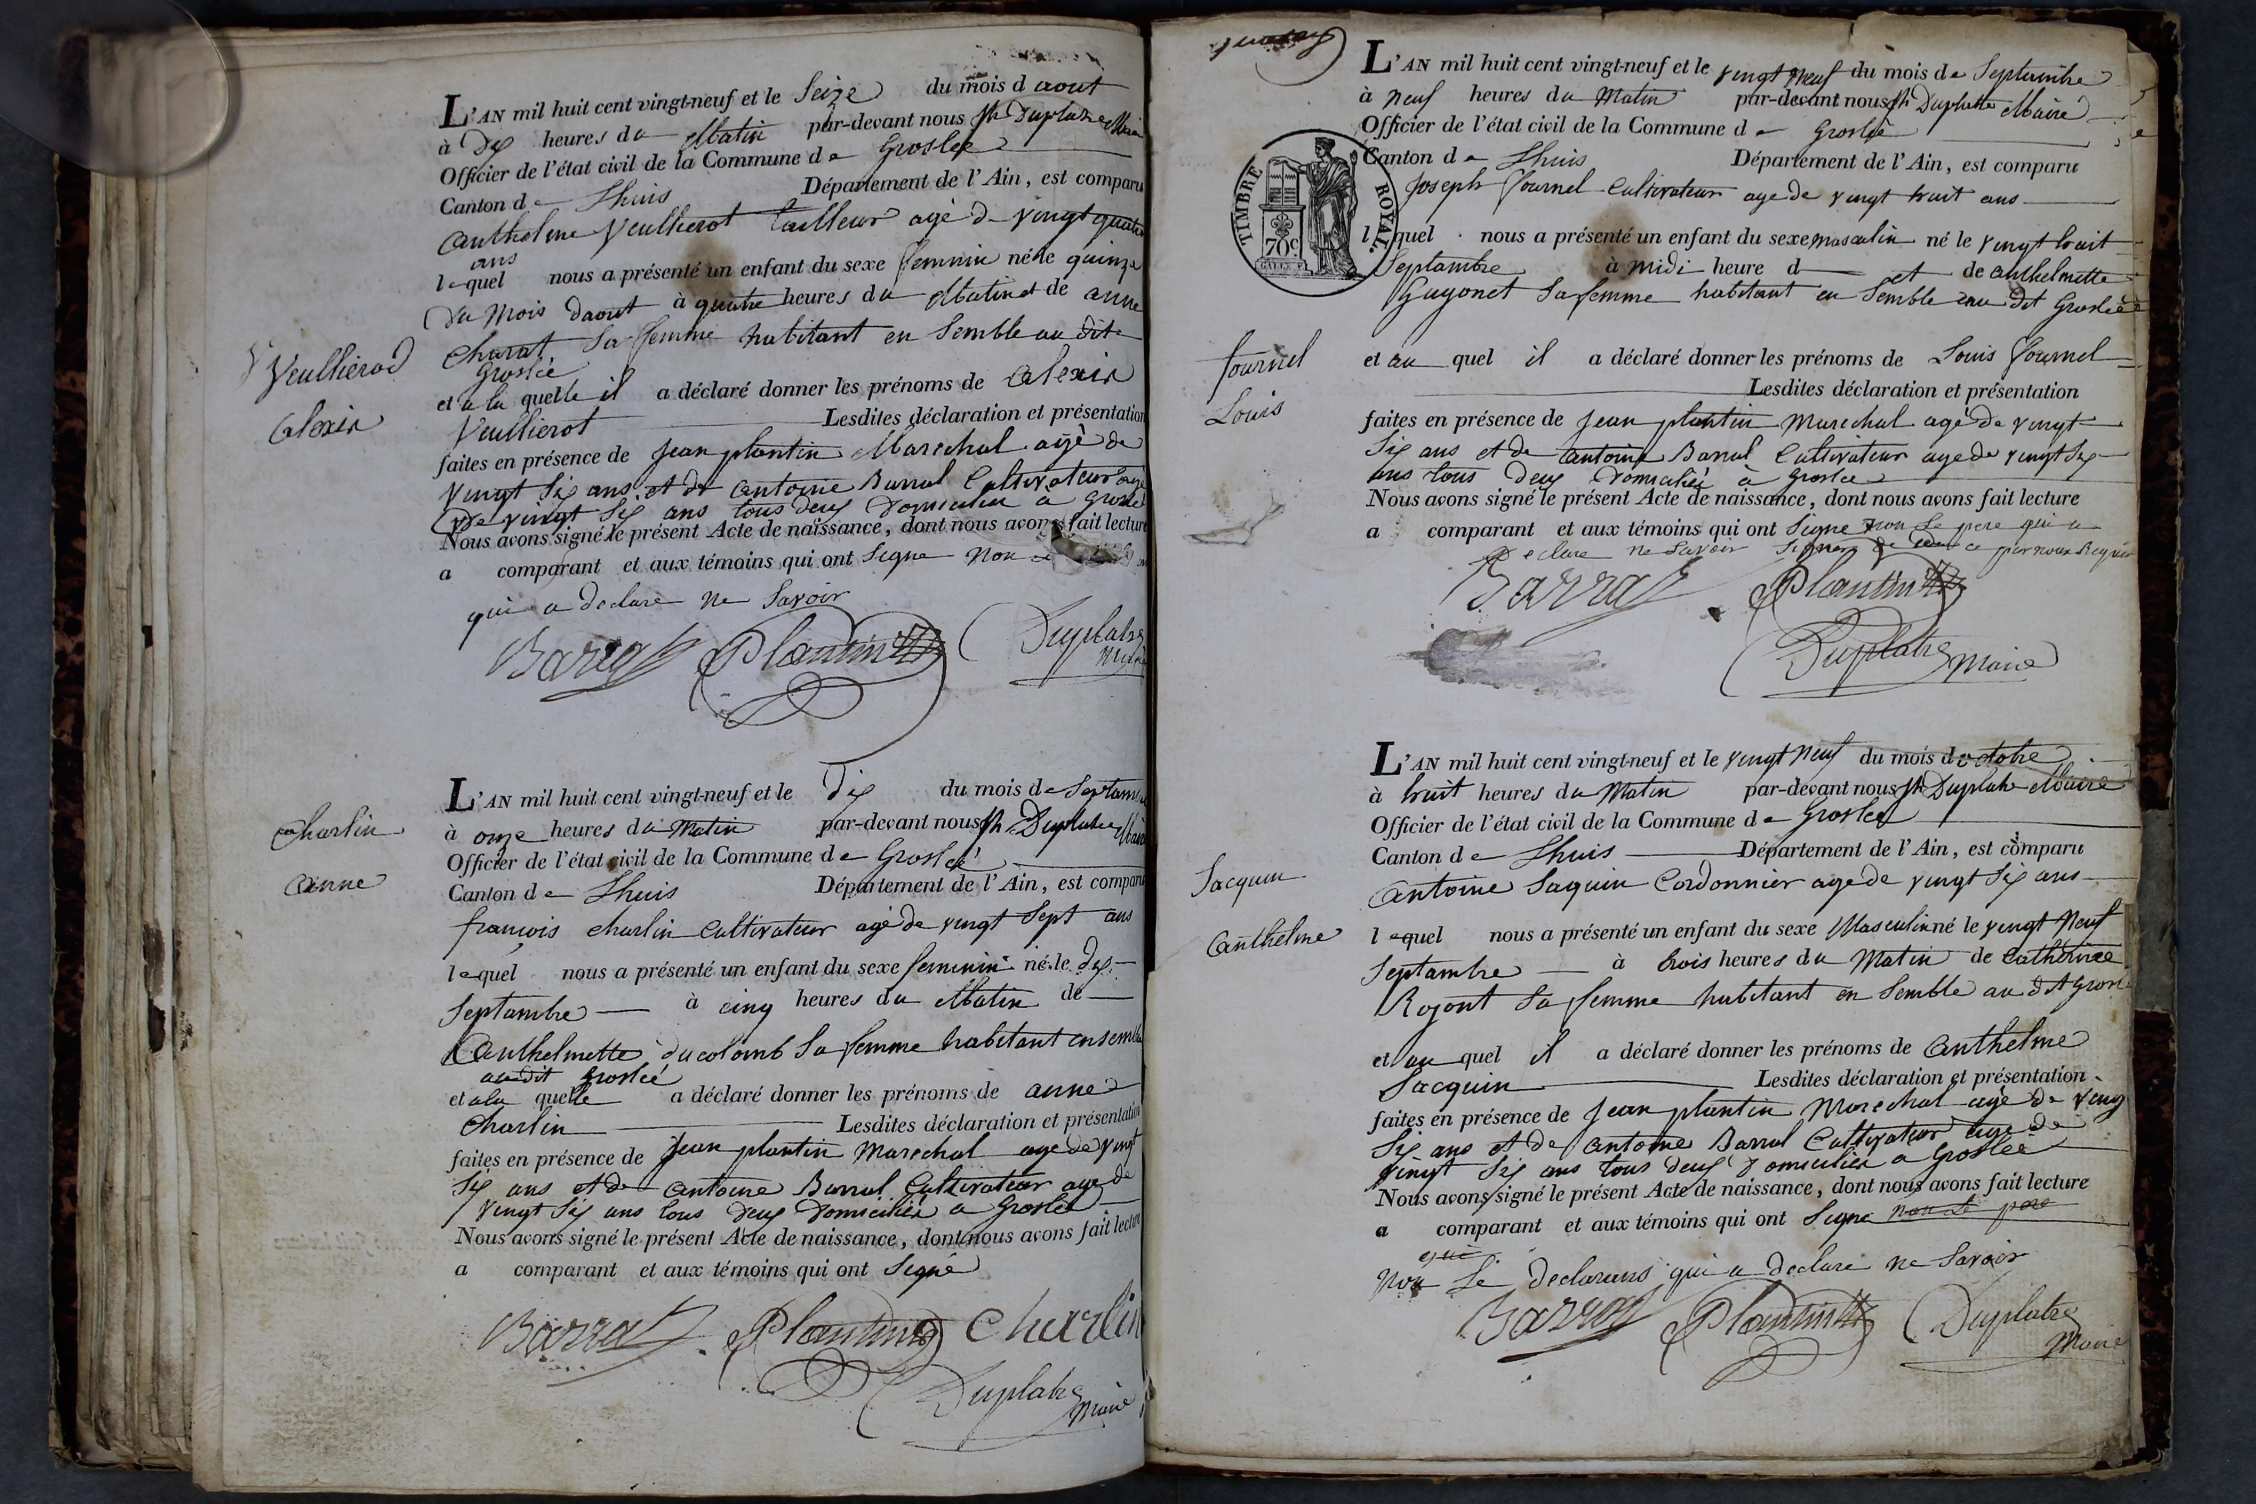 L'AN mil huit cent vingt-neuf et le Seize du mois d aout
à dix heures du Matin par-devant nous jh Duplatre Maire
Officier de l'état civil de la Commune de Groslée
Canton de Lhuis Département de l'Ain, est comparu
anthelme Veullierot tailleur agé de vingt quatre
ans
lequel nous a présenté un enfant du sexe feminin né le quinze
du mois daout à quatre heures du Matin et de anne
charat Sa femme habitant en Semble au dit
Groslée
Veullierod
et a la quelle il a déclaré donner les prénoms de alexis
alexis
Veullierot Lesdites déclaration et présentation
faites en présence de jean plantin Marechal agé de
vingt Six ans et de antoine Barral Cultivateur agé
de vingt Six ans tous deux domicilies a Groslée
Nous avons signé le présent Acte de naissance, dont nous avons fait lecture
a comparant et aux témoins qui ont Signe Non
qui a declare ne Savoir
Barral Plantin Duplatre
Maire
L'AN mil huit cent vingt-neuf et le dix du mois de Septambre
charlin
à onze heures du Matin par-devant nous jh Duplatre Maire
Officier de l'état civil de la Commune de Groslée
anne
Canton de Lhuis Département de l'Ain, est comparu
françois charlin Cultivateur agé de vingt Sept ans
lequel nous a présenté un enfant du sexe feminin né le dix
Septambre à cinq heures du Matin de
Anthelmette ducolomb Sa femme habitant ensemble
audit Groslée
et a la quelle a déclaré donner les prénoms de anne
charlin Lesdites déclaration et présentation
faites en présence de jean plantin Marechal age de vingt
Six ans et de antoine Barral Cultivateur age de
vingt Six ans tous deux domicilies a Groslée
Nous avons signé le présent Acte de naissance, dont nous avons fait lecture
a comparant et aux témoins qui ont Signé
Barral Plantin charlin
Duplatre
Maire
L'AN mil huit cent vingt-neuf et le vingt neuf du mois de Septambre
à neuf heures du Matin par-devant nous jh Duplatre Maire
Officier de l'état civil de la Commune de Groslée
TIMBRE ROYAL
70c.
Canton de Lhuis Département de l'Ain, est comparu
Joseph fournel Cultivateur age de vingt huit ans
lequel nous a présenté un enfant du sexe masculin né le vingt huit
Septambre à midi heure d et de anthelmette
Guyonet Sa femme habitant en Semble au dit Groslée
fournel
et au quel il a déclaré donner les prénoms de Louis fournel
Lesdites déclaration et présentation
Louis
faites en présence de jean plantin Marechal agé de vingt
Six ans et de antoine Barral Cultivateur age de vingt Six
ans tous deux domicilies à Groslée
Nous avons signé le présent Acte de naissance, dont nous avons fait lecture
a comparant et aux témoins qui ont Signe non Le pere qui a
declare ne Savoir Signer de ce par nous Requis
Barral Plantin
Duplatre Maire
L'AN mil huit cent vingt-neuf et le vingt neuf du mois doctobre
à huit heures du Matin par-devant nous jh Duplatre Maire
Officier de l'état civil de la Commune de Groslée
Canton de Lhuis Département de l'Ain, est comparu
Sacquin
antoine Saquin Cordonnier age de vingt Six ans
anthelme
lequel nous a présenté un enfant du sexe Masculin né le vingt Neuf
Septambre à trois heures du Matin de Catherine
Rojont Sa femme habitant en Semble au dit Groslée
et au quel il a déclaré donner les prénoms de anthelme
Sacquin Lesdites déclaration et présentation
faites en présence de jean plantin Marechal agé de vingt
Six ans et de antoine Barral Cultivateur age de
vingt Six ans tous deux domicilies a Groslée
Nous avons signé le présent Acte de naissance, dont nous avons fait lecture
a comparant et aux témoins qui ont Signe non le pere
qui
non Le declarans qui a declare ne Savoir
Barral Plantin Duplatre
Maire